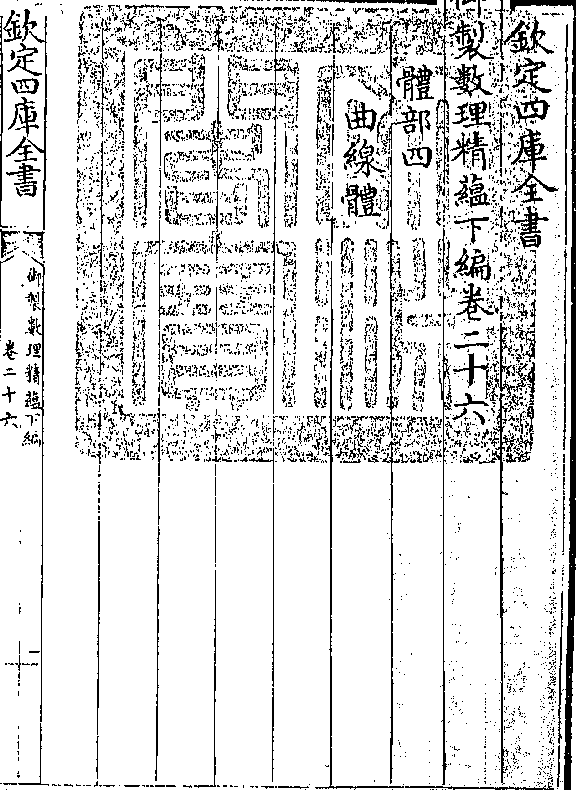 欽定四庫全書
御製數理精蘊下編卷二十六
體部四
曲線體
欽定四庫全書
御製數理精蘊下編
卷二十六
一